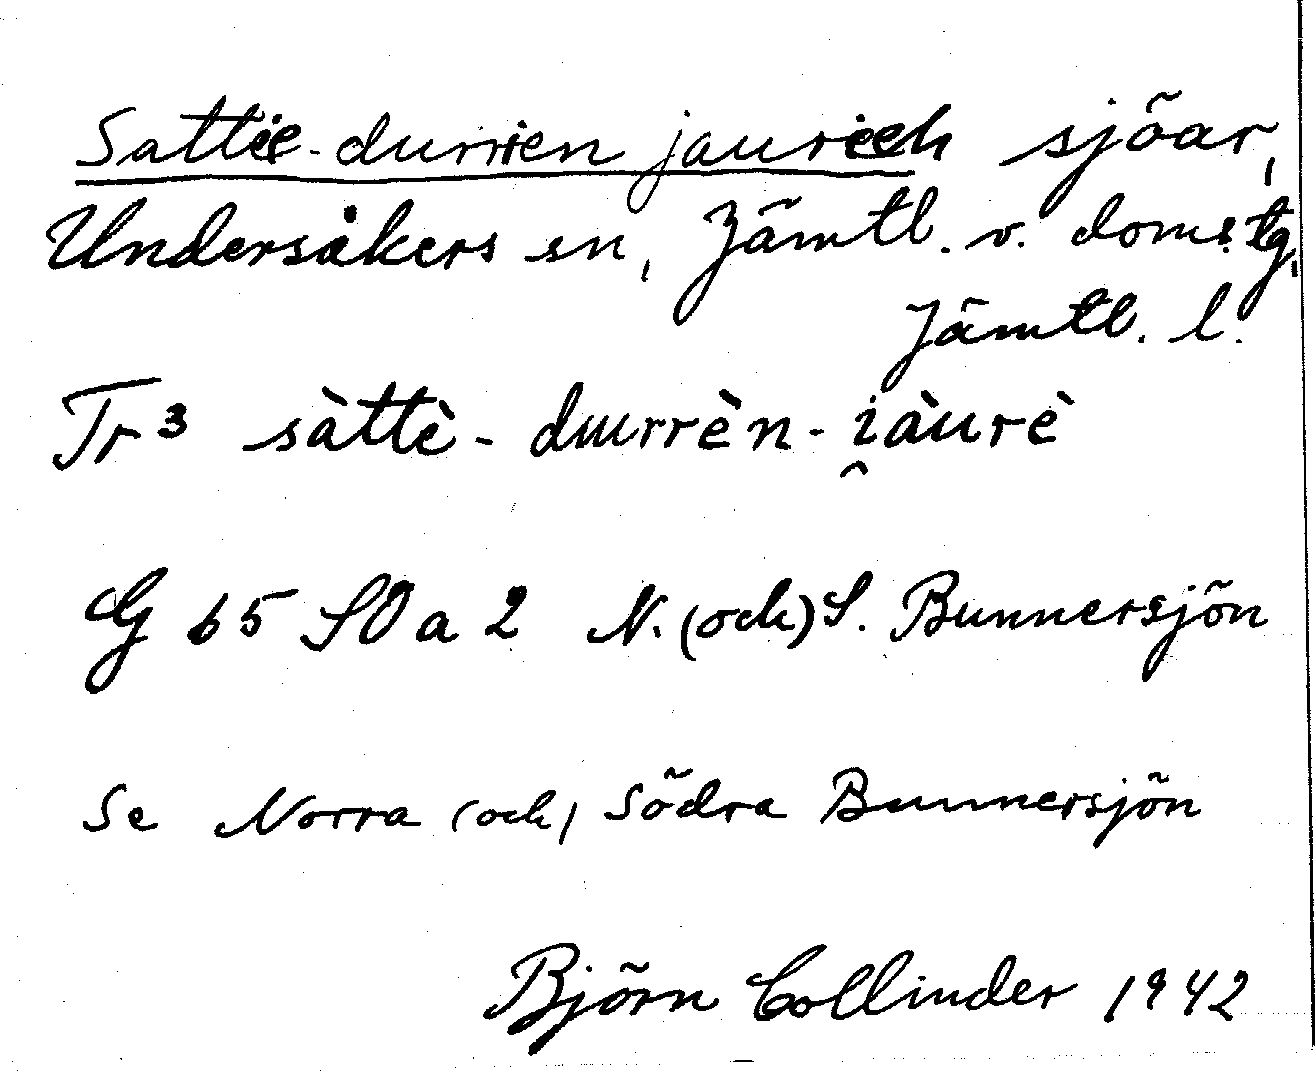 Sattie-durrien jaurieh sjöar,
Undersåkers sn, Jämtl. v. doms. tg.
Jämtl. l.
Tr³ sàttè-duurrèn-i̯àurè
G 65 SO a 2 N. (och) S. Bunnersjön
Se Norra (och) Södra Bunnersjön
Björn Collinder 1942